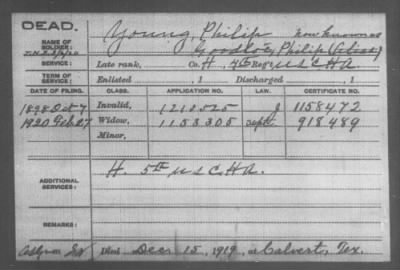 DEAD.
Young, Philip now known as
NAME OF SOLDIER: Goodloe, Philip (Alias)
SERVICE: Late rank, Co. H, Reg't U S C H A
TERM OF SERVICE: Enlisted , 1 Discharged , 1
DATE OF FILING. CLASS. APPLICATION NO. LAW. CERTIFICATE NO.
1898 Oct 7 Invalid, 1210525 1158472
1920 Feb 27 Widow, 1153305 918489
Minor,
ADDITIONAL SERVICES: H. 5th U S C H A.
REMARKS:
Died Dec 15, 1919, at Calvert, Tex.